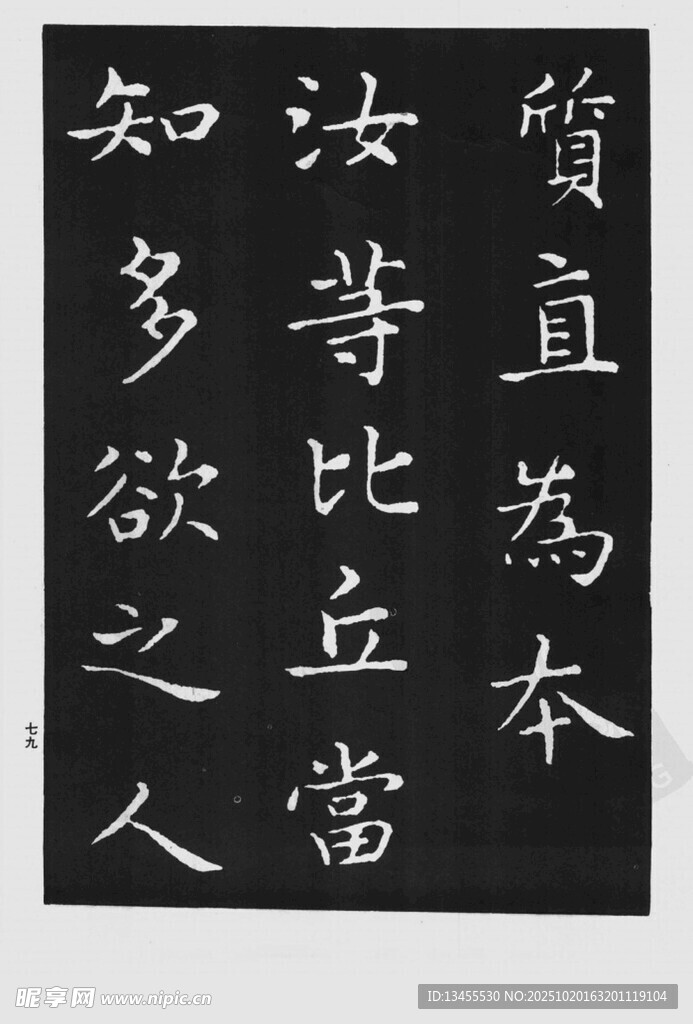 質直為本
汝等比丘當
知多欲之人
七九
昵享网 www.nipic.cn
ID:13455530 NO:20251020163201119104